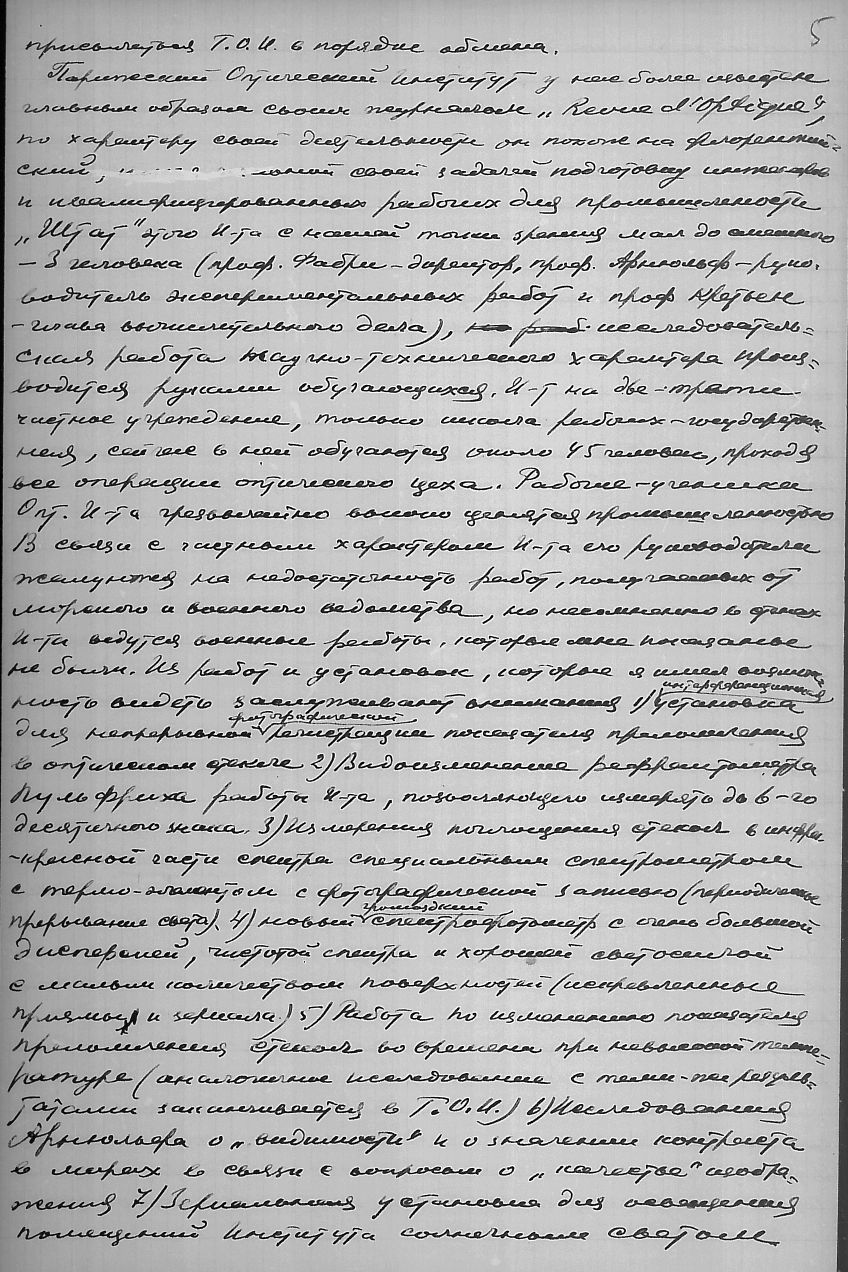 5
присылаться Г.О.И. в порядке обмена.
Парижский Оптический Институт у нас более известен
главным образом своим журналом „Revue d'Optique",
по характеру своей деятельности он похож на флорентий-
ский, своей задачей подготовку инженеров
и квалифицированных рабочих для промышленности
„Штат" этого И-та с нашей точки зрения мал до смешного
– 3 человека (проф. Фабри – директор, проф. Арнюльф – руко-
водитель экспериментальных работ и проф Кретьен
– глава вычислительного дела), исследователь-
ская работа научно-технического характера произ-
водится руками обучающихся. И-т на две трети
частное учреждение, только школа рабочих – государствен-
ная, сейчас в ней обучаются около 45 человек, проходя
все операции оптического цеха. Рабочие-ученики
Опт. И-та чрезвычайно высоко ценятся промышленностью
В связи с частным характером И-та его руководители
жалуются на недостаточность работ, получаемых от
морского и военного ведомства, но несомненно в стенах
И-та ведутся военные работы, которые мне показаны
не были. Из работ и установок, которые я имел возмож-
ность видеть заслуживают внимания 1) интерференционная установка
для непрерывной фотографической регистрации показателя преломления
в оптическом стекле 2) Видоизменение рефрактометра
Пульфриха работы И-та, позволяющего измерять до 6-го
десятичного знака. 3) Измерения поглощения стекол в инфра
-красной части спектра специальным спектрометром
с термо-элементом с фотографической записью (периодические
прерывание света). 4) новый громоздкий спектрофотометр с очень большой
дисперсией, чистотой спектра и хорошей светосилой
с малым количеством поверхностей (искривленные
призмы и зеркала) 5) Работа по изменению показателя
преломления стекол во времени при невысокой темпе-
ратуре (аналогичное исследование с теми-же резуль-
татами заканчивается в Г.О.И.) 6) Исследования
Арнюльфа о „видимости" и о значении контраста
в мирах в связи с вопросом о „качестве" изобра-
жения 7) Зеркальная установка для освещения
помещений Института солнечным светом